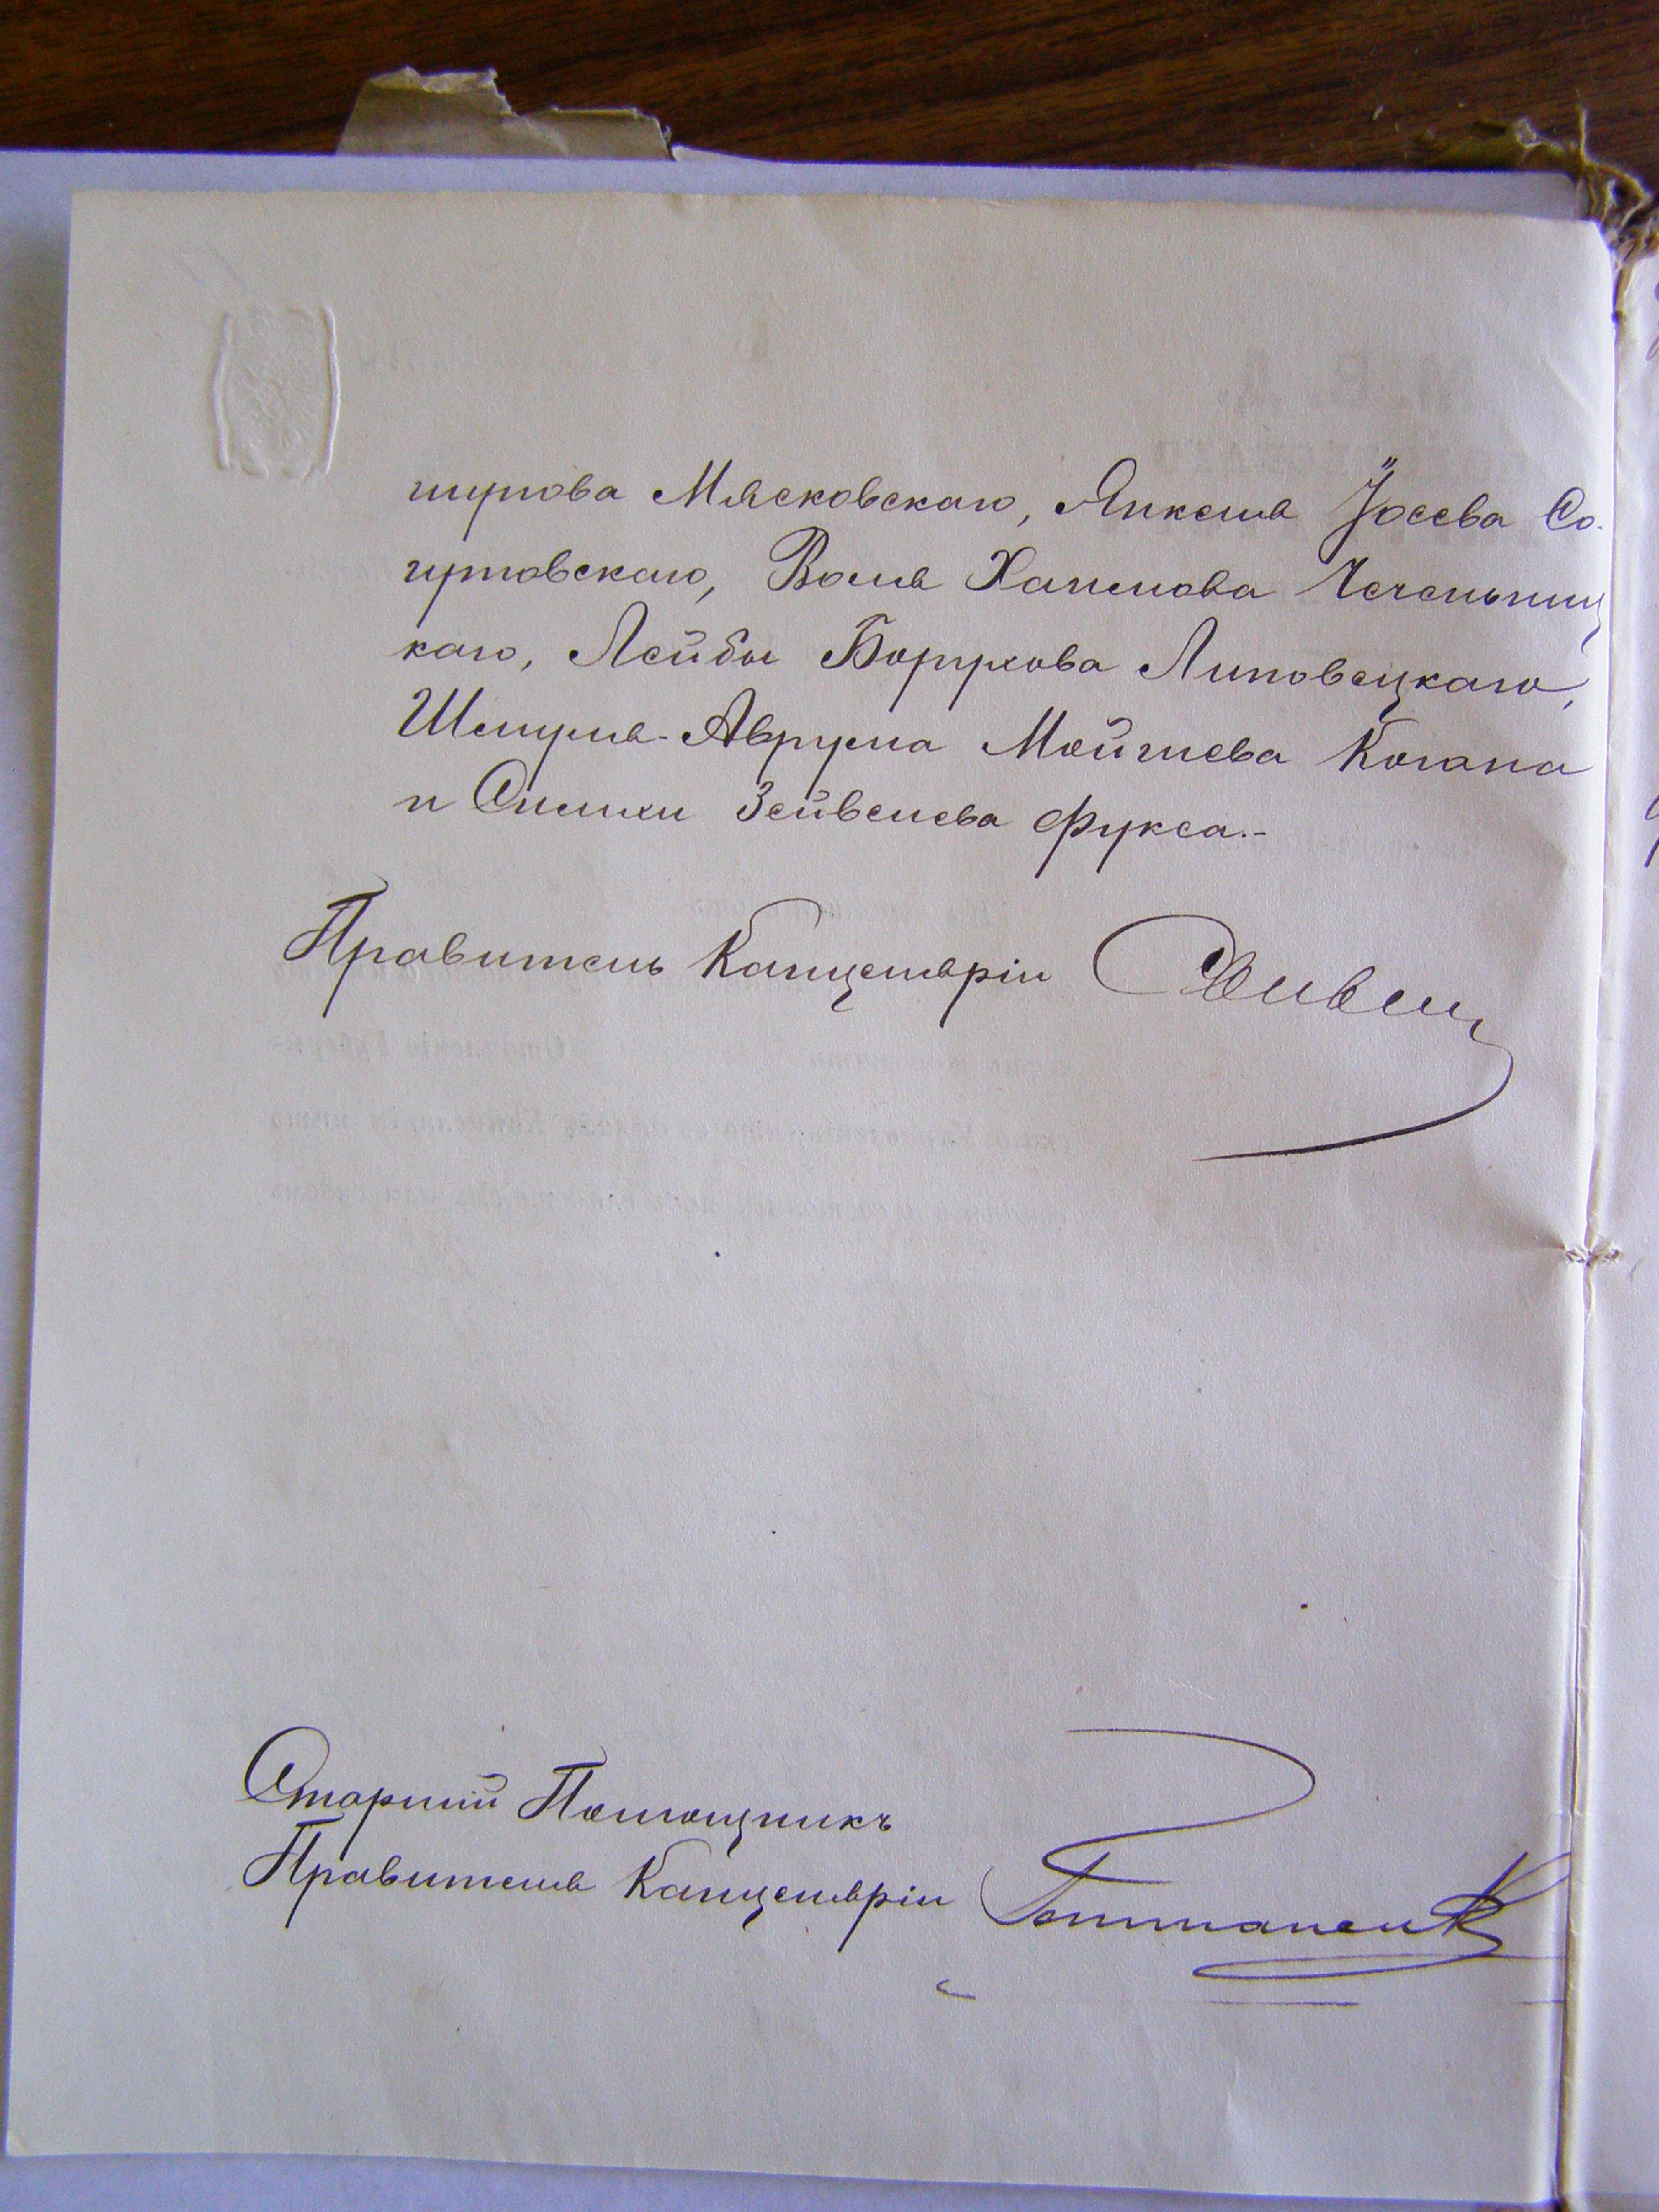 шулова Мясковскаго, Янкеля Іосева Со-
гутовскаго, Воля Хаимова Чечельниц
каго, Лейбы Борухова Липовецкаго,
Шмуля-Аврума Мойшева Когана
и Симхи Зейвелева Фукса.-
Правитель Канцеляріи
Старшій Помощникъ
Правителя Канцеляріи